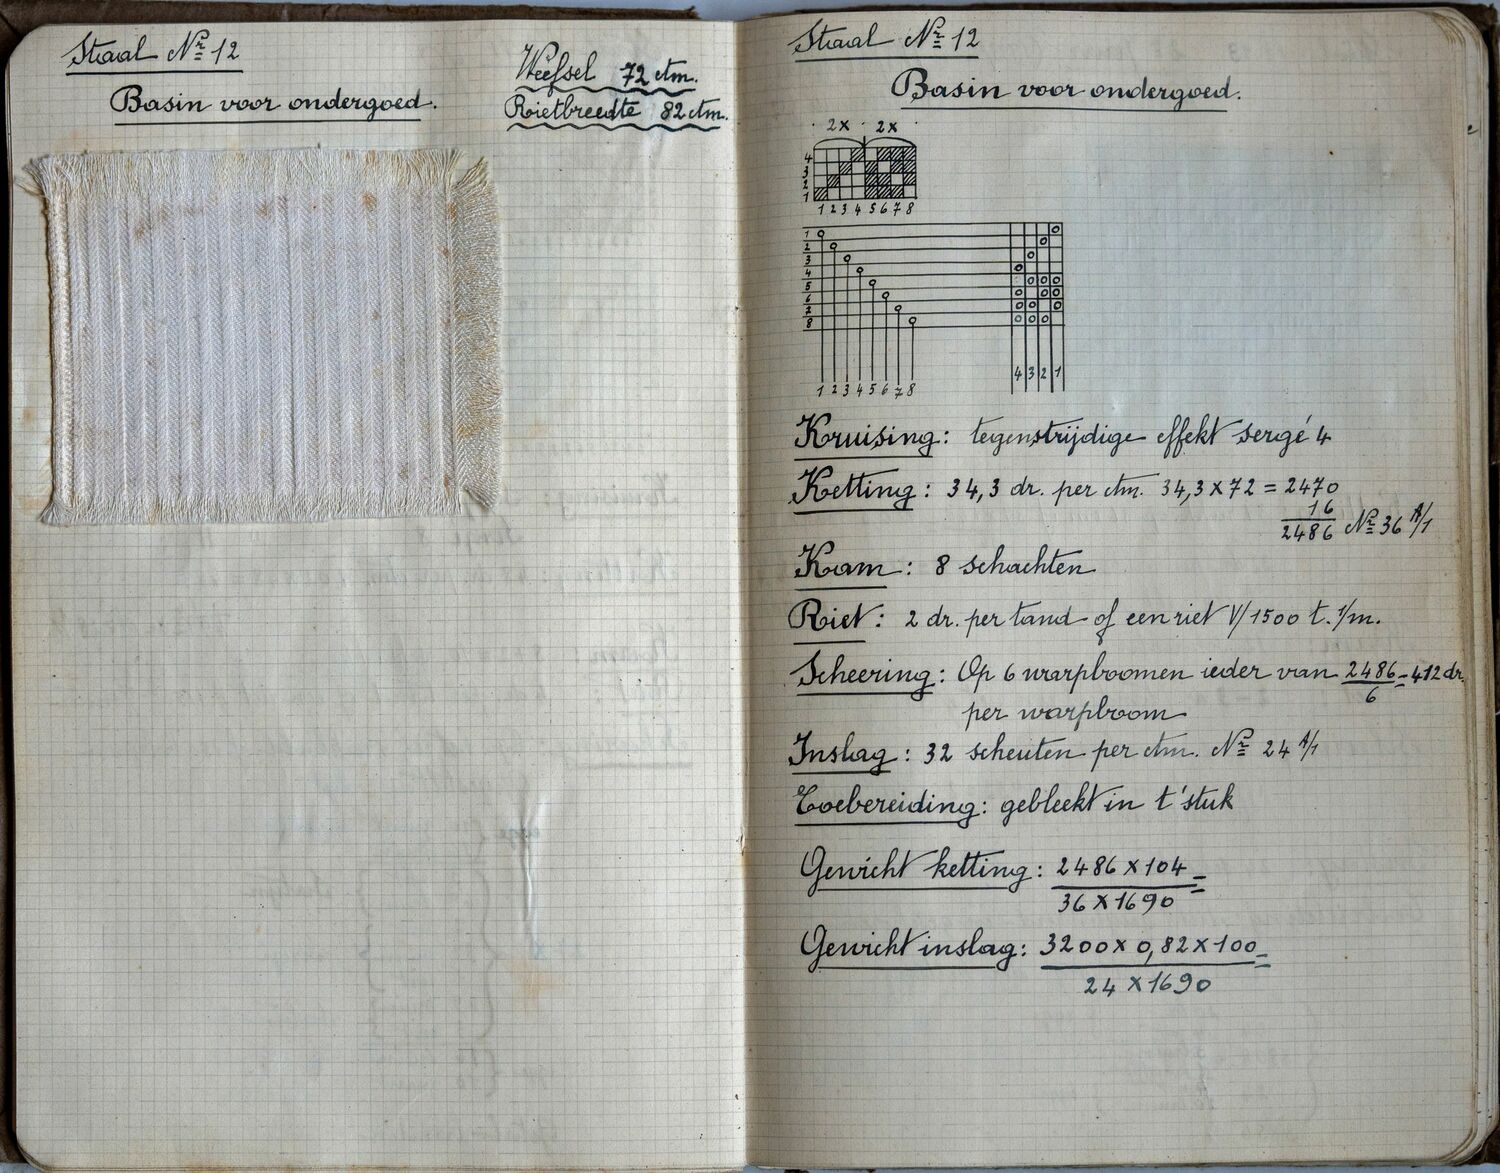 Staal Nr 12
Basin voor ondergoed.
Weefsel 72 ctm.
Rietbreedte 82 ctm.
Staal Nr 12
Basin voor ondergoed.
2x 2x
4
3
2
1
1 2 3 4 5 6 7 8
1
2
3
4
5
6
7
8
4 3 2 1
1 2 3 4 5 6 7 8
Kruising: tegenstrijdige effekt sergé 4
Ketting: 34,3 dr. per ctm. 34,3 x 72 = 2470
16
2486 Nr 36 A/1
Kam: 8 schachten
Riet: 2 dr. per tand of een riet V/1500 t. 1/m.
Scheering: Op 6 warpboomen ieder van 2486/6 = 412 dr.
per warpboom
Inslag: 32 scheuten per ctm. Nr 24 A/1
Toebereiding: gebleekt in t'stuk
Gewicht ketting: 2486 x 104 =
36 x 1690
Gewicht inslag: 3200 x 0,82 x 100 =
24 x 1690